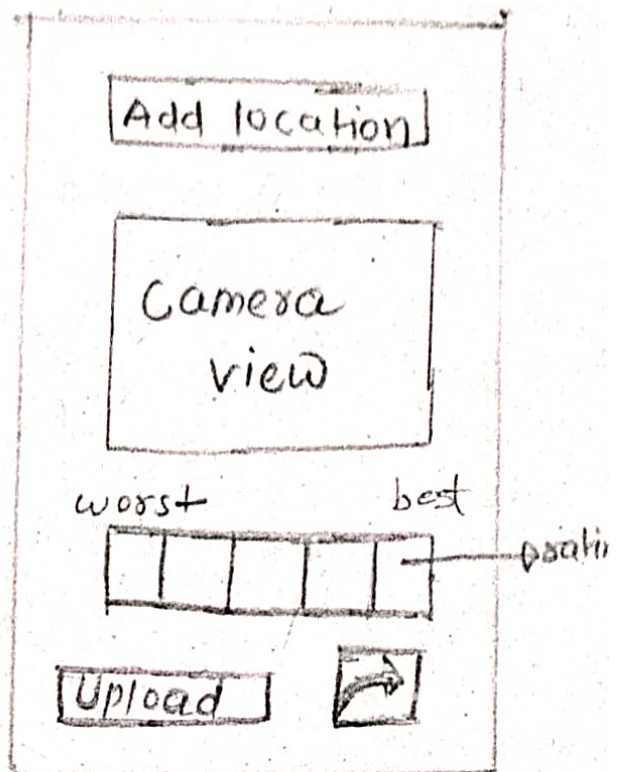 Add location
Camera
view
worst best
Upload